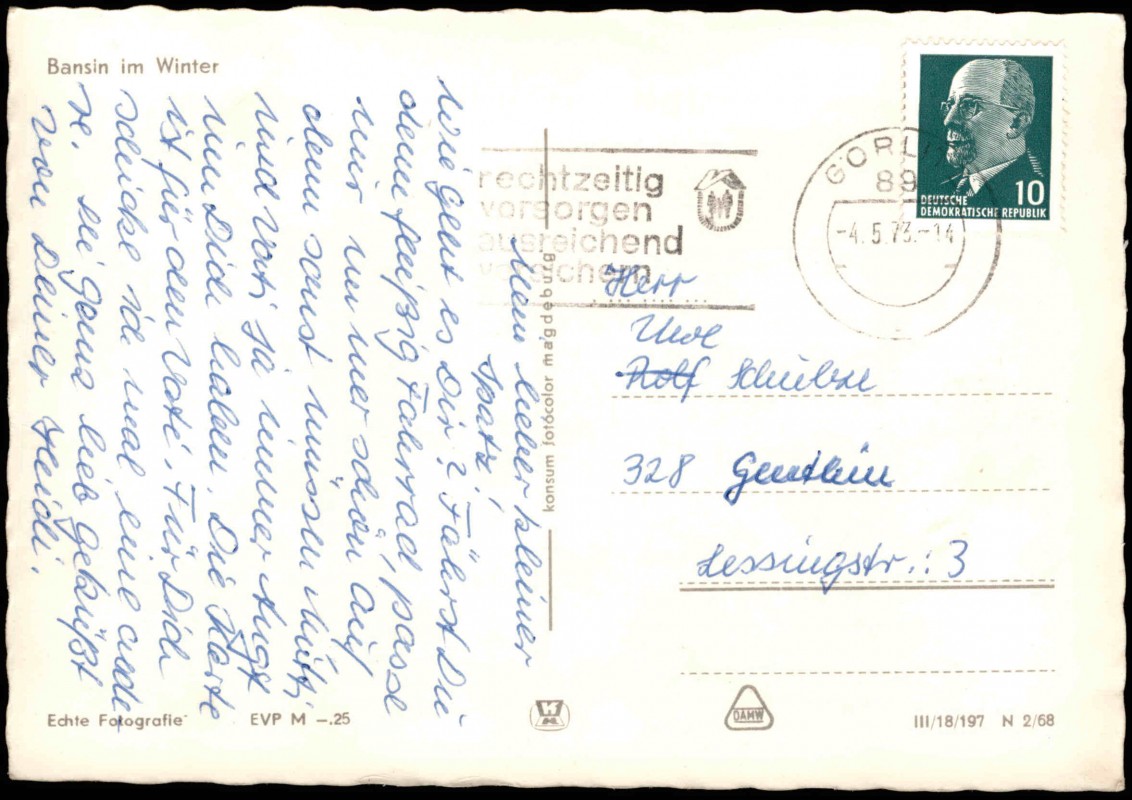 Bansin im Winter
Mein lieber kleiner
Spatz!
Wie geht es Dir? Fährst Du
denn fleißig Fahrrad, passe
nur immer schön auf
denn sonst müssen Mutti
und Vati ja immer Angst
um Dich haben. Die Karte
ist für den Vati. Für Dich
schicke ich mal eine ande-
re. Sei ganz lieb geküßt
von Deiner Heidi.
Echte Fotografie
EVP M -.25
konsum fotocolor magdeburg
rechtzeitig
vorsorgen
ausreichend
versichern
GÖRL
89
-4.5.73.-14
10
DEUTSCHE
DEMOKRATISCHE REPUBLIK
Herr
Uwe
Rolf Schielze
328 Genthin
Lessingstr.: 3
DAMW
III/18/197 N 2/68